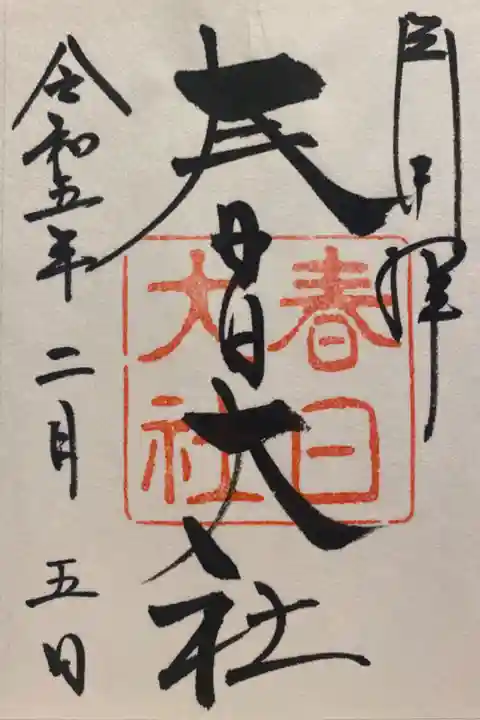 春日大社
令和五年二月五日
春日
大社